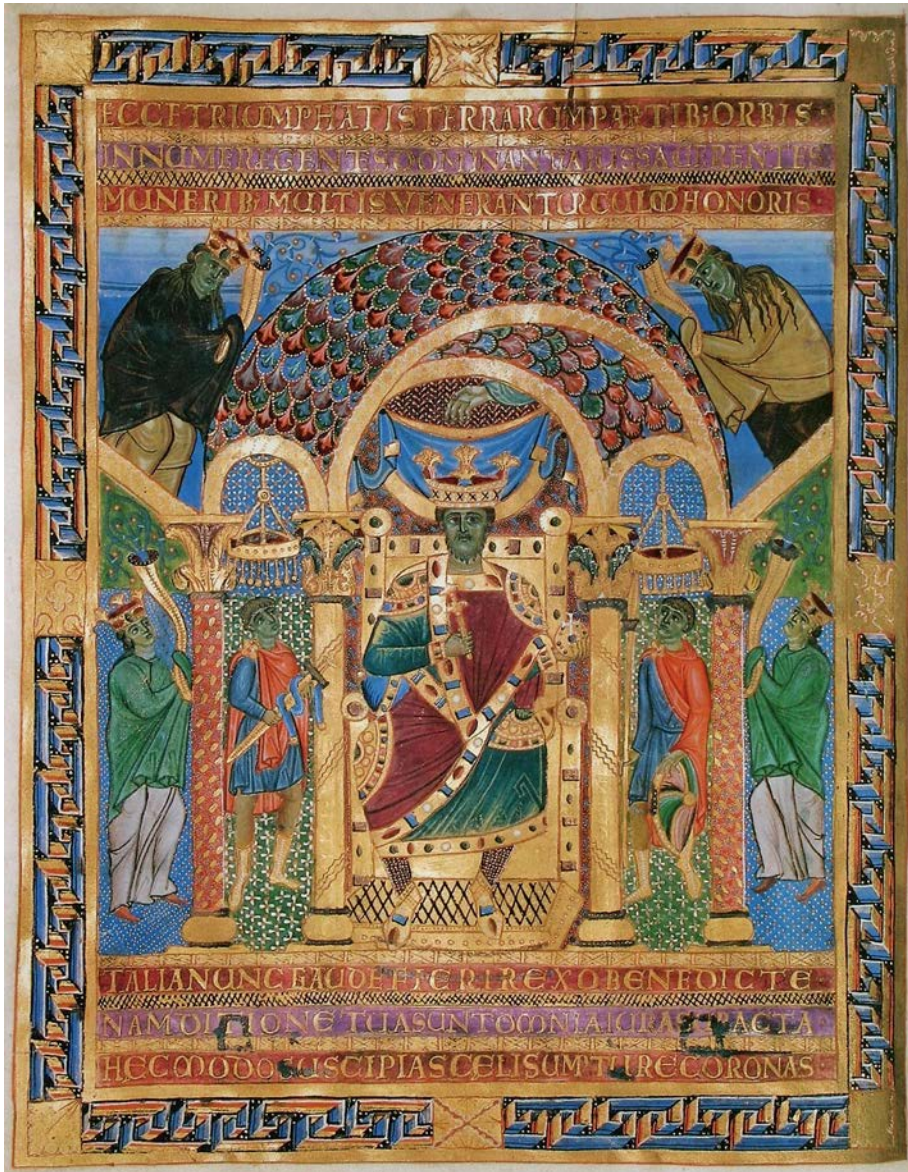 ECCE TRIUMPHATIS TERRARUM PARTIB: ORBIS
INNUMERE GENTES DOMINANTIA IUSSA GERENTES
MUNERIB: MULTIS VENERANTUR CULM HONORIS
TALIA NUNC GAUDE FIERI REX O BENEDICTE
NAM DITIONE TUA SUNT OMNIA IURA SUBACTA
HEC MODO SUSCIPIAS CELI SUMTURE CORONAS